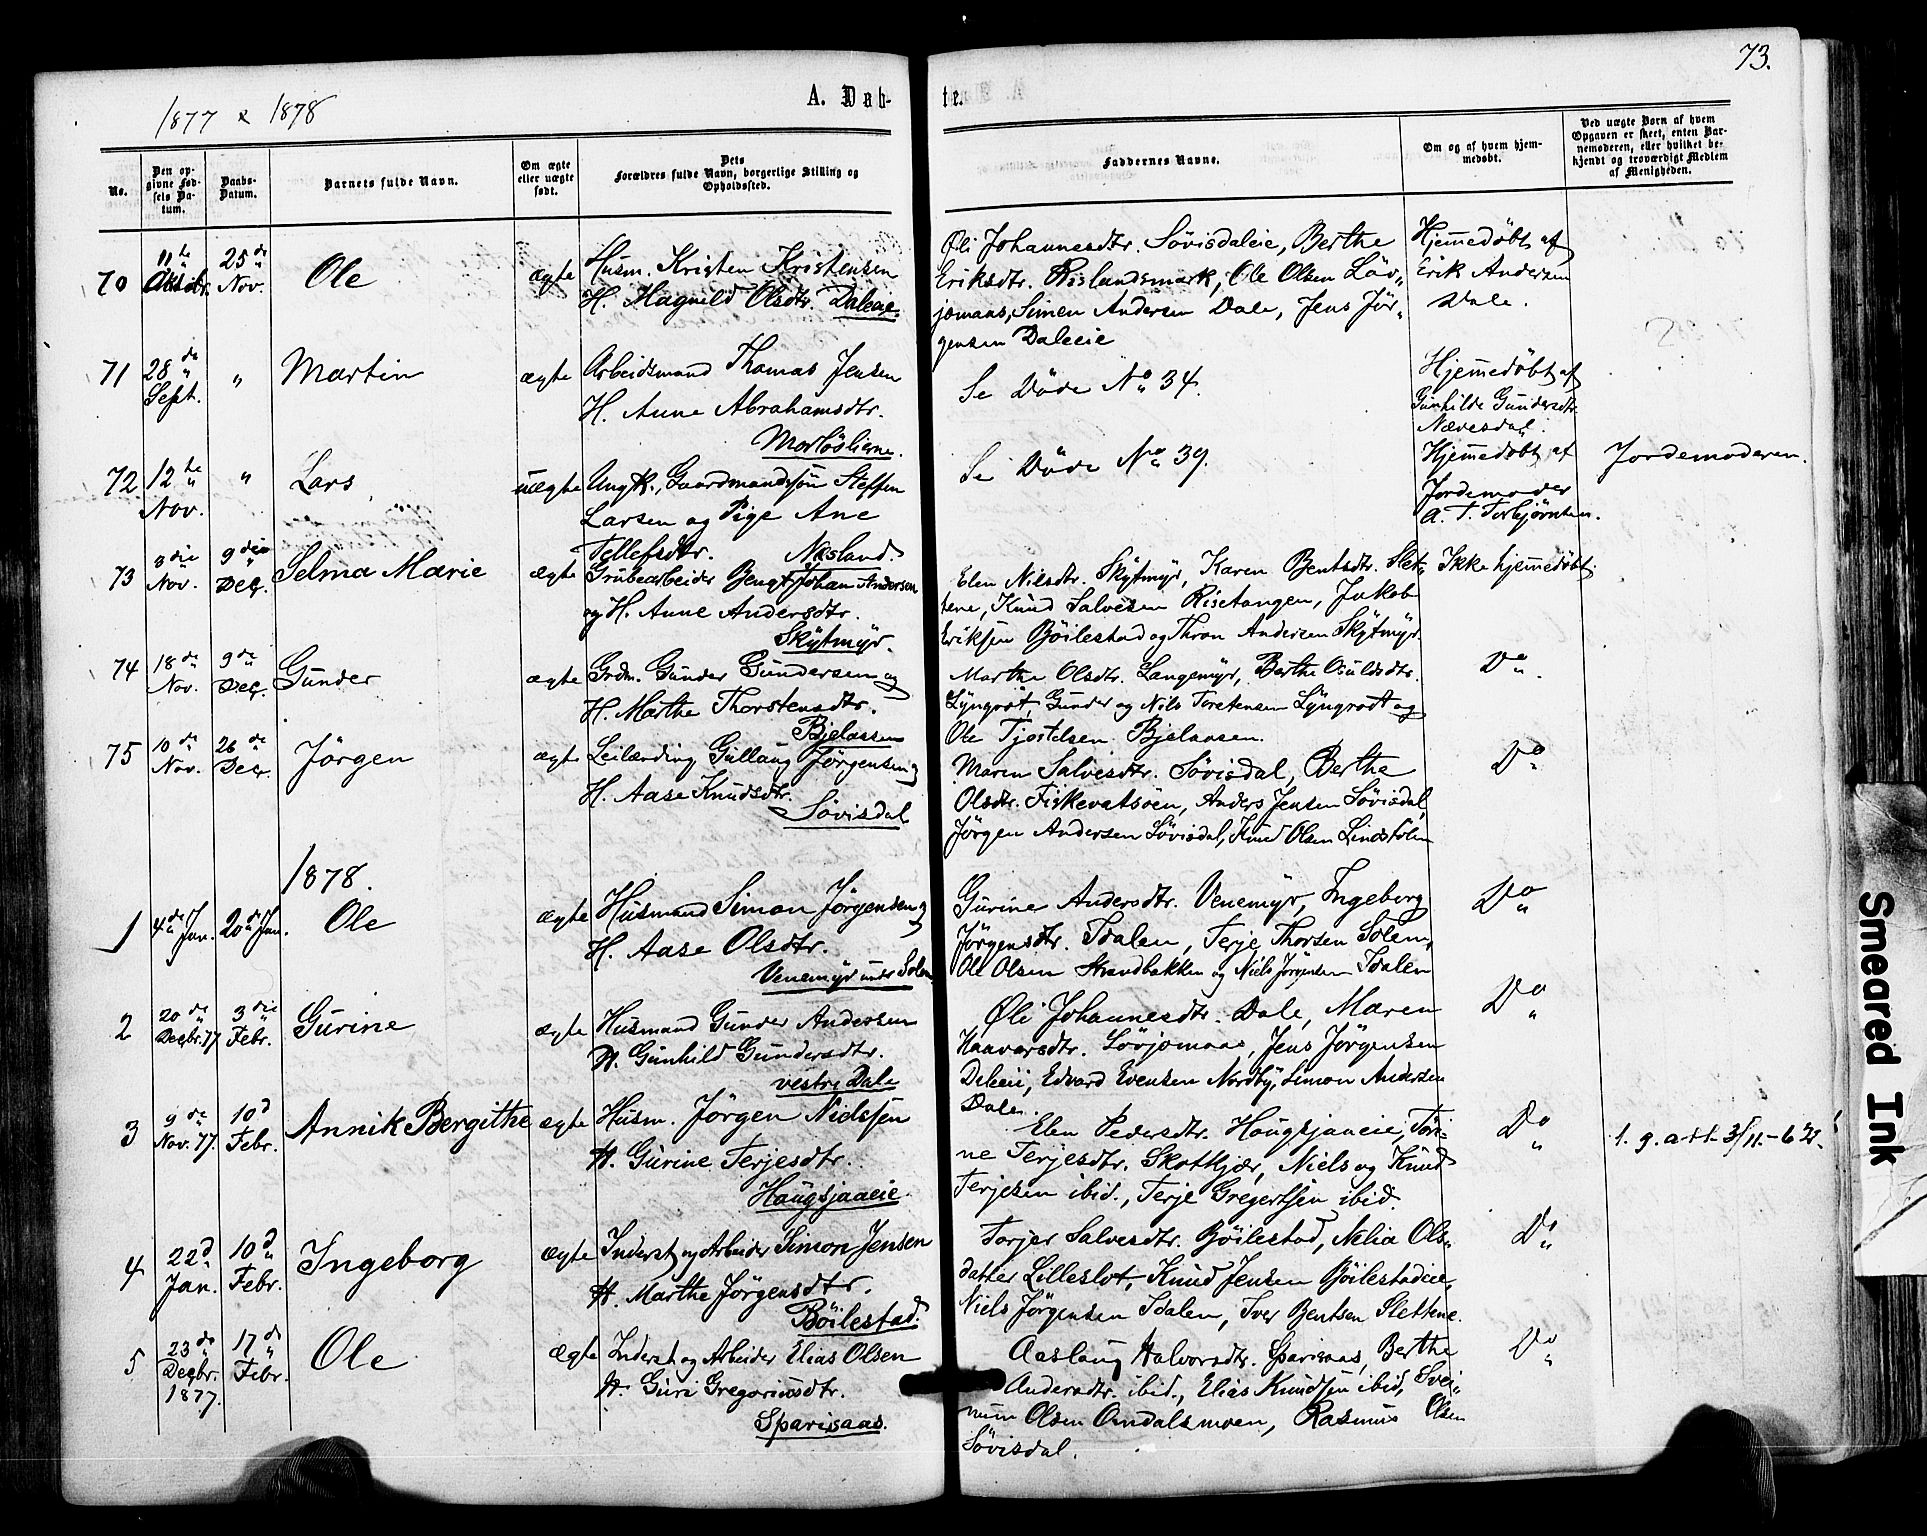 73.
1877 & 1878
A. Døb-
te.
No.
Den op-
givne Fød-
sels Da-
tum.
Daabs-
Datum.
Barnets fulde Navn.
Om ægte
eller uægte
født.
Dets
Forældres fulde Navn, borgerlige Stilling og
Opholdssted.
Faddernes Navne.
Om og af hvem hjem-
medøbt.
Ved uægte Børn af hvem
Opgaven er skeet, enten Bar-
nemoderen, eller hvilket be-
kjendt og troværdigt Medlem
af Menigheden.
70
11te
Oktbr.
25de
Nov.
Ole
ægte
Husm. Kristen Kristensen
H. Hagnild Olsdtr. Daleeie.
Øli Johannesdtr. Sövisdaleie, Berthe
Eriksdtr. Rislandsmark, Ole Olsen Löv-
jomaas, Simen Andersen Dale, Jens Jör-
gensen Daleeie
Hjemmedøbt af
Erik Andersen
Dale.
71
28de
Sept.
"
Martin
ægte
Arbeidsmand Thomas Jensen
H. Anne Abrahamsdtr.
Morlöslierne.
Se Döde No 34.
Hjemmedøbt af
Gunhilde Gundersdtr.
Nævesdal.
72
12te
Nov.
"
Lars
uægte
Ungk., Gaardmandssön Steffen
Larsen og Pige Ane
Tellefsdtr. Næsland.
Se Döde No 39.
Hjemmedøbt af
Jordemoder
A. T. Torbjörnsen.
Jordemoderen.
73
3die
Nov.
9die
Dec.
Selma Marie
ægte
Grubearbeider Bengt Johan Andersen
og H. Anne Andersdtr.
Skytmyr.
Elen Nilsdtr. Skytmyr, Karen Bentsdtr. Slet-
tene, Knud Salvesen Risetangen, Jakob
Eriksen Böilestad og Thron Andersen Skytmyr.
Ikke hjemmedøbt.
74
18de
Nov.
9de
Dec.
Gunder
ægte
Grdm. Gunder Gundersen og
H. Marthe Thorstensdtr.
Bjelaasen
Marthe Olsdtr. Langemyr, Berthe Osuldsdtr.
Lyngrot, Gunder og Nils Torstensen Lyngrodt og
Ole Tjostelsen Bjelaasen.
Do
75
10de
Nov.
26de
Dec.
Jörgen
ægte
Leilænding Gullaug Jörgensen og
H. Aase Knudsdtr.
Sövisdal
Maren Salvesdtr. Sövisdal, Berthe
Olsdtr. Fiskevatsöen, Anders Jensen Sövisdal,
Jörgen Andersen Sövisdal, Knud Olsen Lindstölen
Do
1878.
1
4de Jan.
20de Jan.
Ole
ægte
Husmand Simon Jörgensen og
H. Aase Olsdtr.
Venemyr under Solem
Gurine Andersdtr. Venemyr, Ingeborg
Jörgensdtr. Idalen, Terje Thorsen Solem,
Ole Olsen Strandbakken og Niels Jörgensen Idalen
Do
2
20de
Decbr. 77
3die
Febr.
Gurine
ægte
Husmand Gunder Andersen
H. Gunhild Gundersdtr.
vestre Dale
Øli Johannesdtr. Dale, Maren
Haavorsdtr. Lövjomaas, Jens Jörgensen
Daleeii, Edvard Evensen Nordby, Simon Andersen
Dale.
Do
3
9de
Nov. 77.
10d
Febr.
Annik Bergithe
ægte
Husm. Jörgen Nielssen
H. Gurine Terjesdtr.
Haugsjaaeie.
Elen Pedersdtr. Hougsjaaeie, Tori-
ne Terjesdtr. Skotkjær, Niels og Knud
Terjesen ibid., Terje Gregertsen ibid.
Do
1. g. att. 3/11.-62.
4
22d
Jan.
10d
Febr.
Ingeborg
ægte
Inderst og Arbeider Simon Jensen
H. Marthe Jörgensdtr.
Böilestad.
Torjer Salvesdtr. Böilestad, Nelia Ols-
datter Lilleslot, Knud Jensen Böilestadeie,
Niels Jörgensen Idalen, Iver Bentsen Slettene.
Do
5
23de
Decbr.
1877.
17de
Febr.
Ole
ægte
Inderst og Arbeider Elias Olsen
H. Guri Gregoriusdtr.
Sparisaas.
Aaslaug Halvorsdtr. Sparisaas, Berthe
Andersdtr. ibid., Elias Knudsen ibid, Svei-
num Olsen Omdalsmoen, Rasmus Olsen
Sövisdal.
Do
Smeared Ink